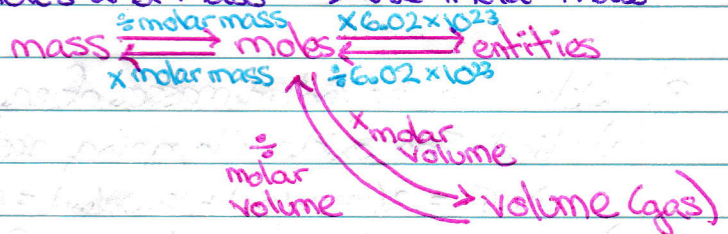 ÷ molar mass x 6.02 x 10²³
mass moles entities
x molar mass ÷ 6.02 x 10²³
x molar
volume
÷
molar
volume
volume (gas)